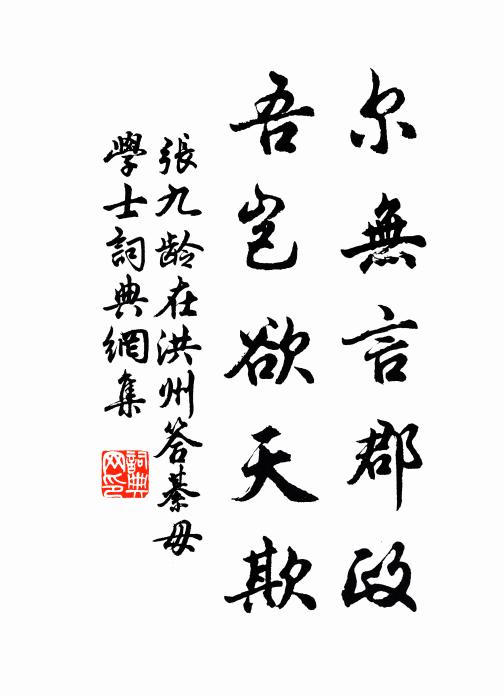 尔無言郡政
吾岂欲天欺
張九龄在洪州答綦毋
學士詞典網集
詞典
网印